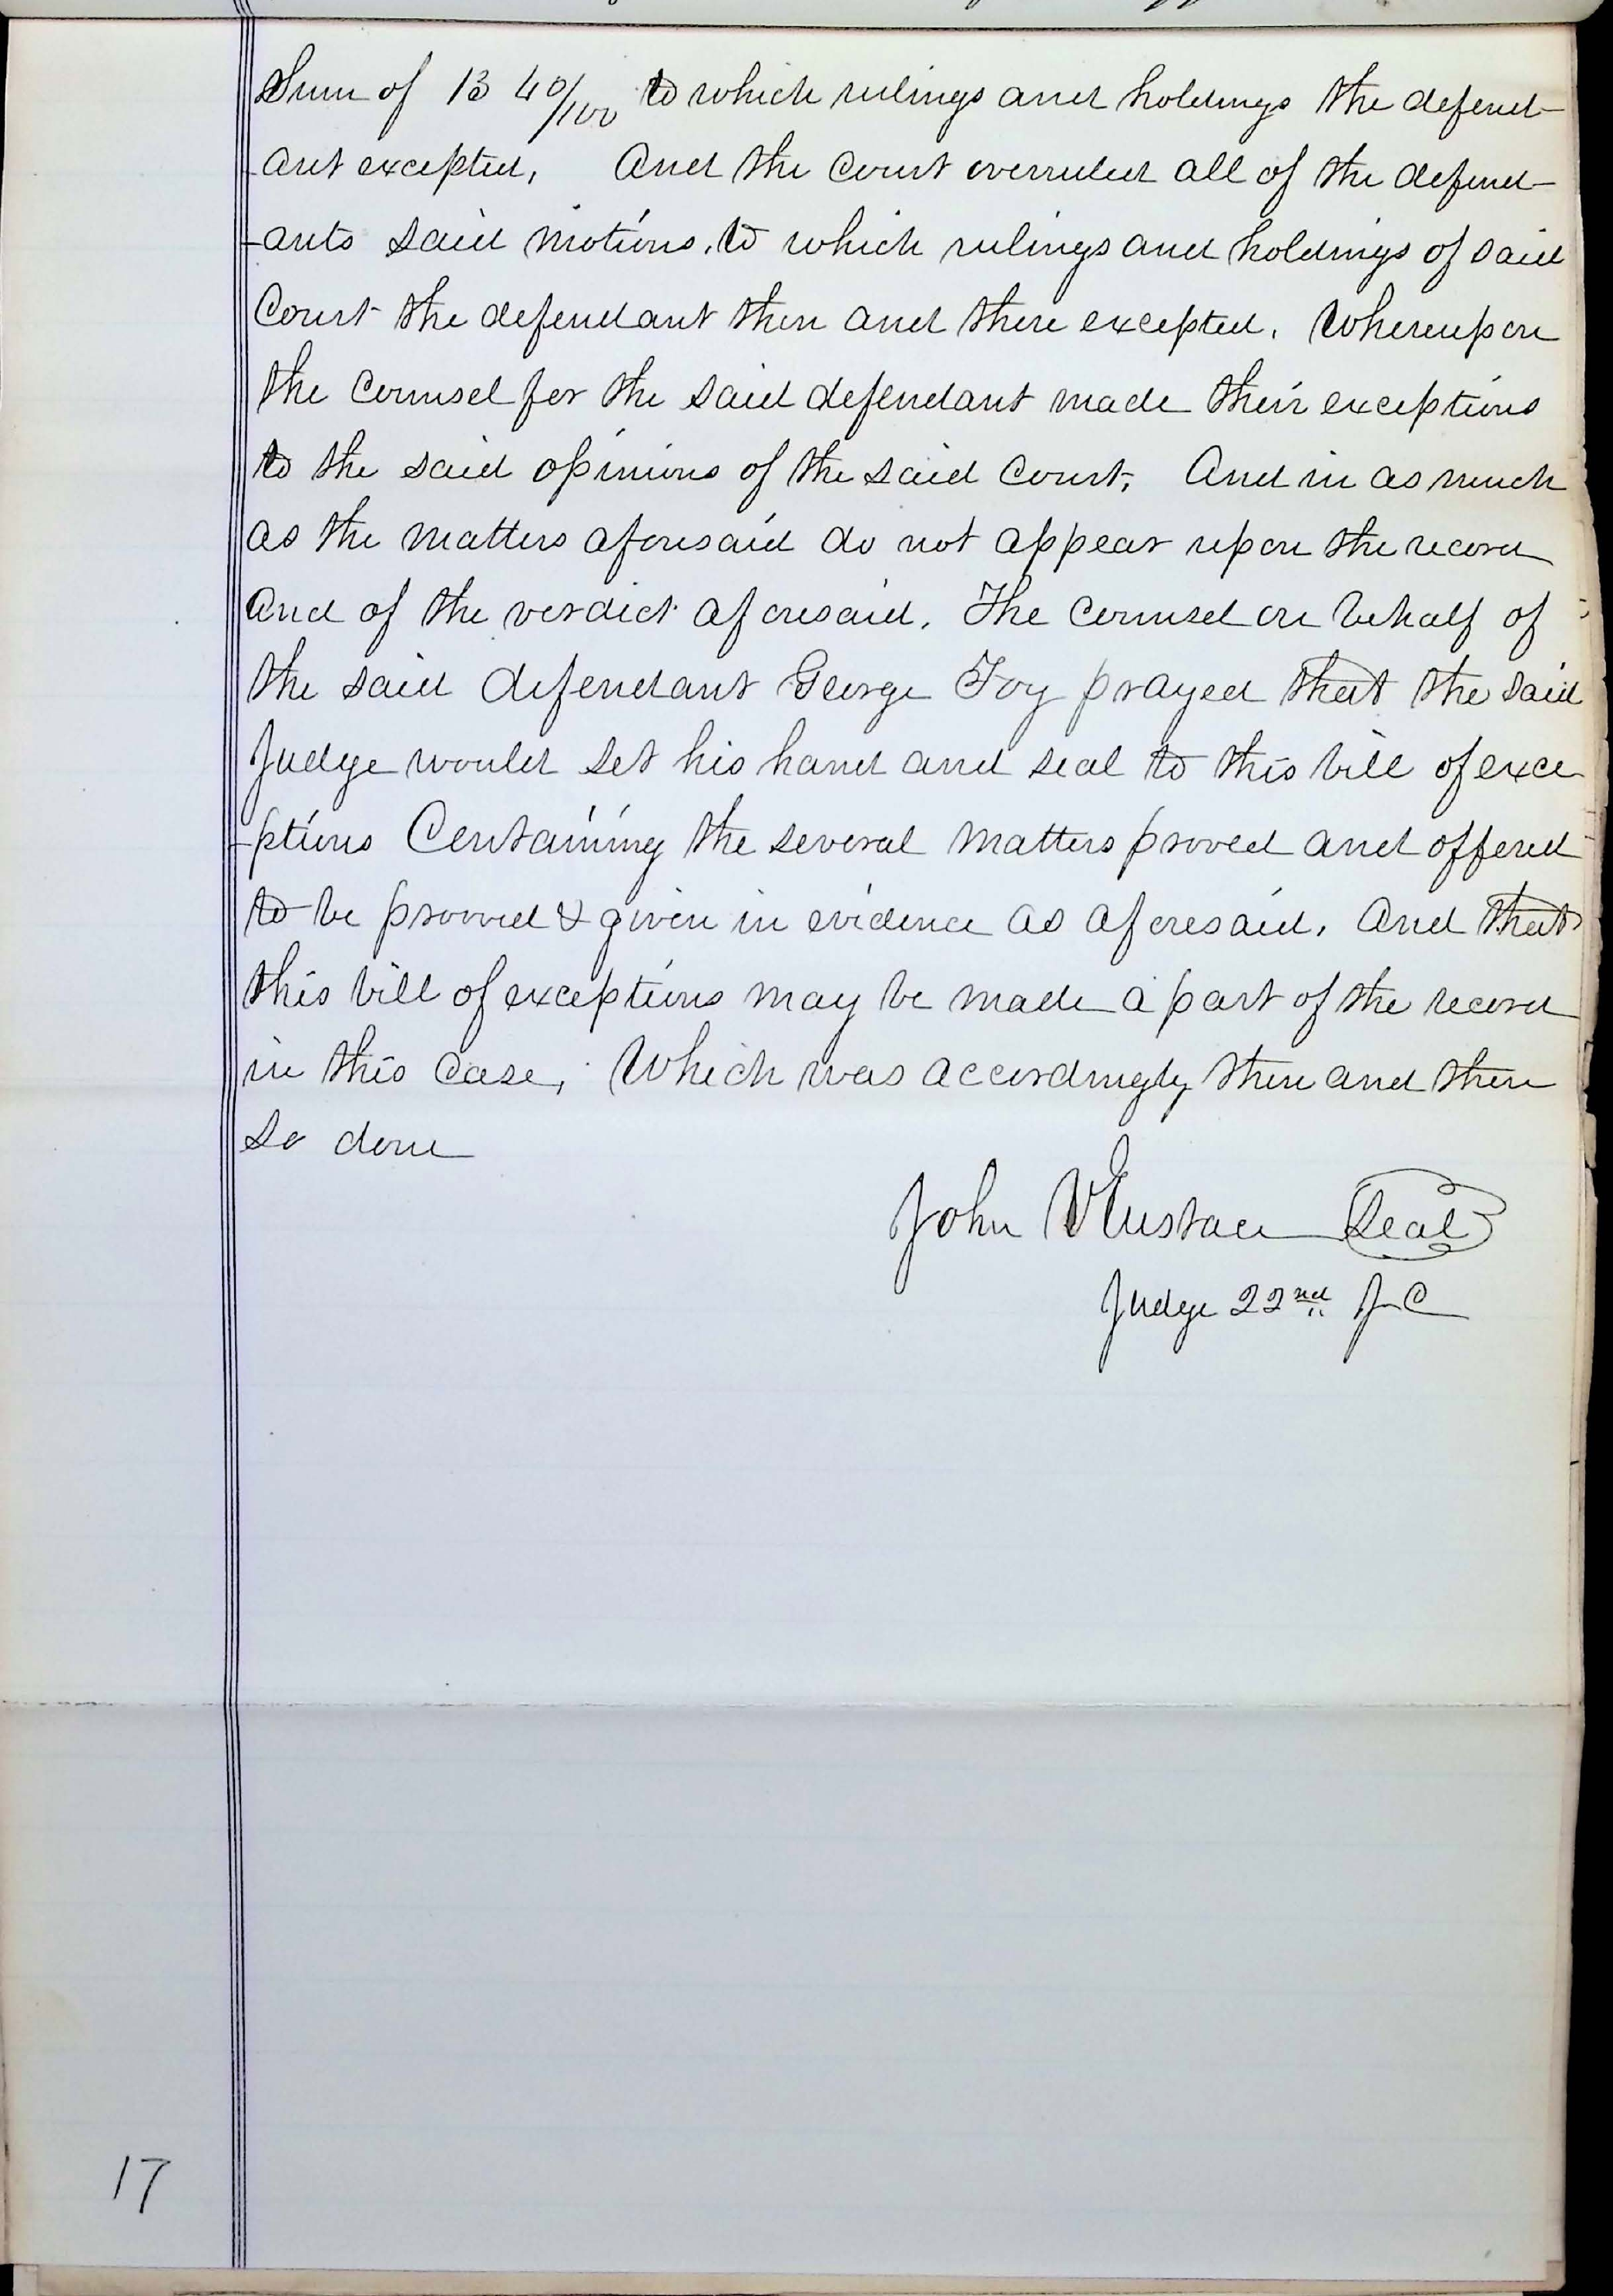 Sum of 13 40/100 to which rulings and holdings the defend-
-ant excepted, And the Court overruled all of the defend-
-ants said motions, to which rulings and holdings of said
Court the defendant then and there excepted. Whereupon
the Counsel for the said defendant made their exceptions
to the said opinions of the said Court, And in as much
as the matters aforesaid do not appear upon the record
And of the verdict aforesaid. The Counsel on behalf of
the said defendant George Foy prayed that the said
Judge would set his hand and seal to this bill of exce
-ptions Containing the several matters proved and offered
to be prooved & given in evidence as aforesaid, And that
this bill of exceptions may be made a part of the record
in this case, Which was accordingly then and there
so done
John V Eustace Seal
Judge 22nd J C
17